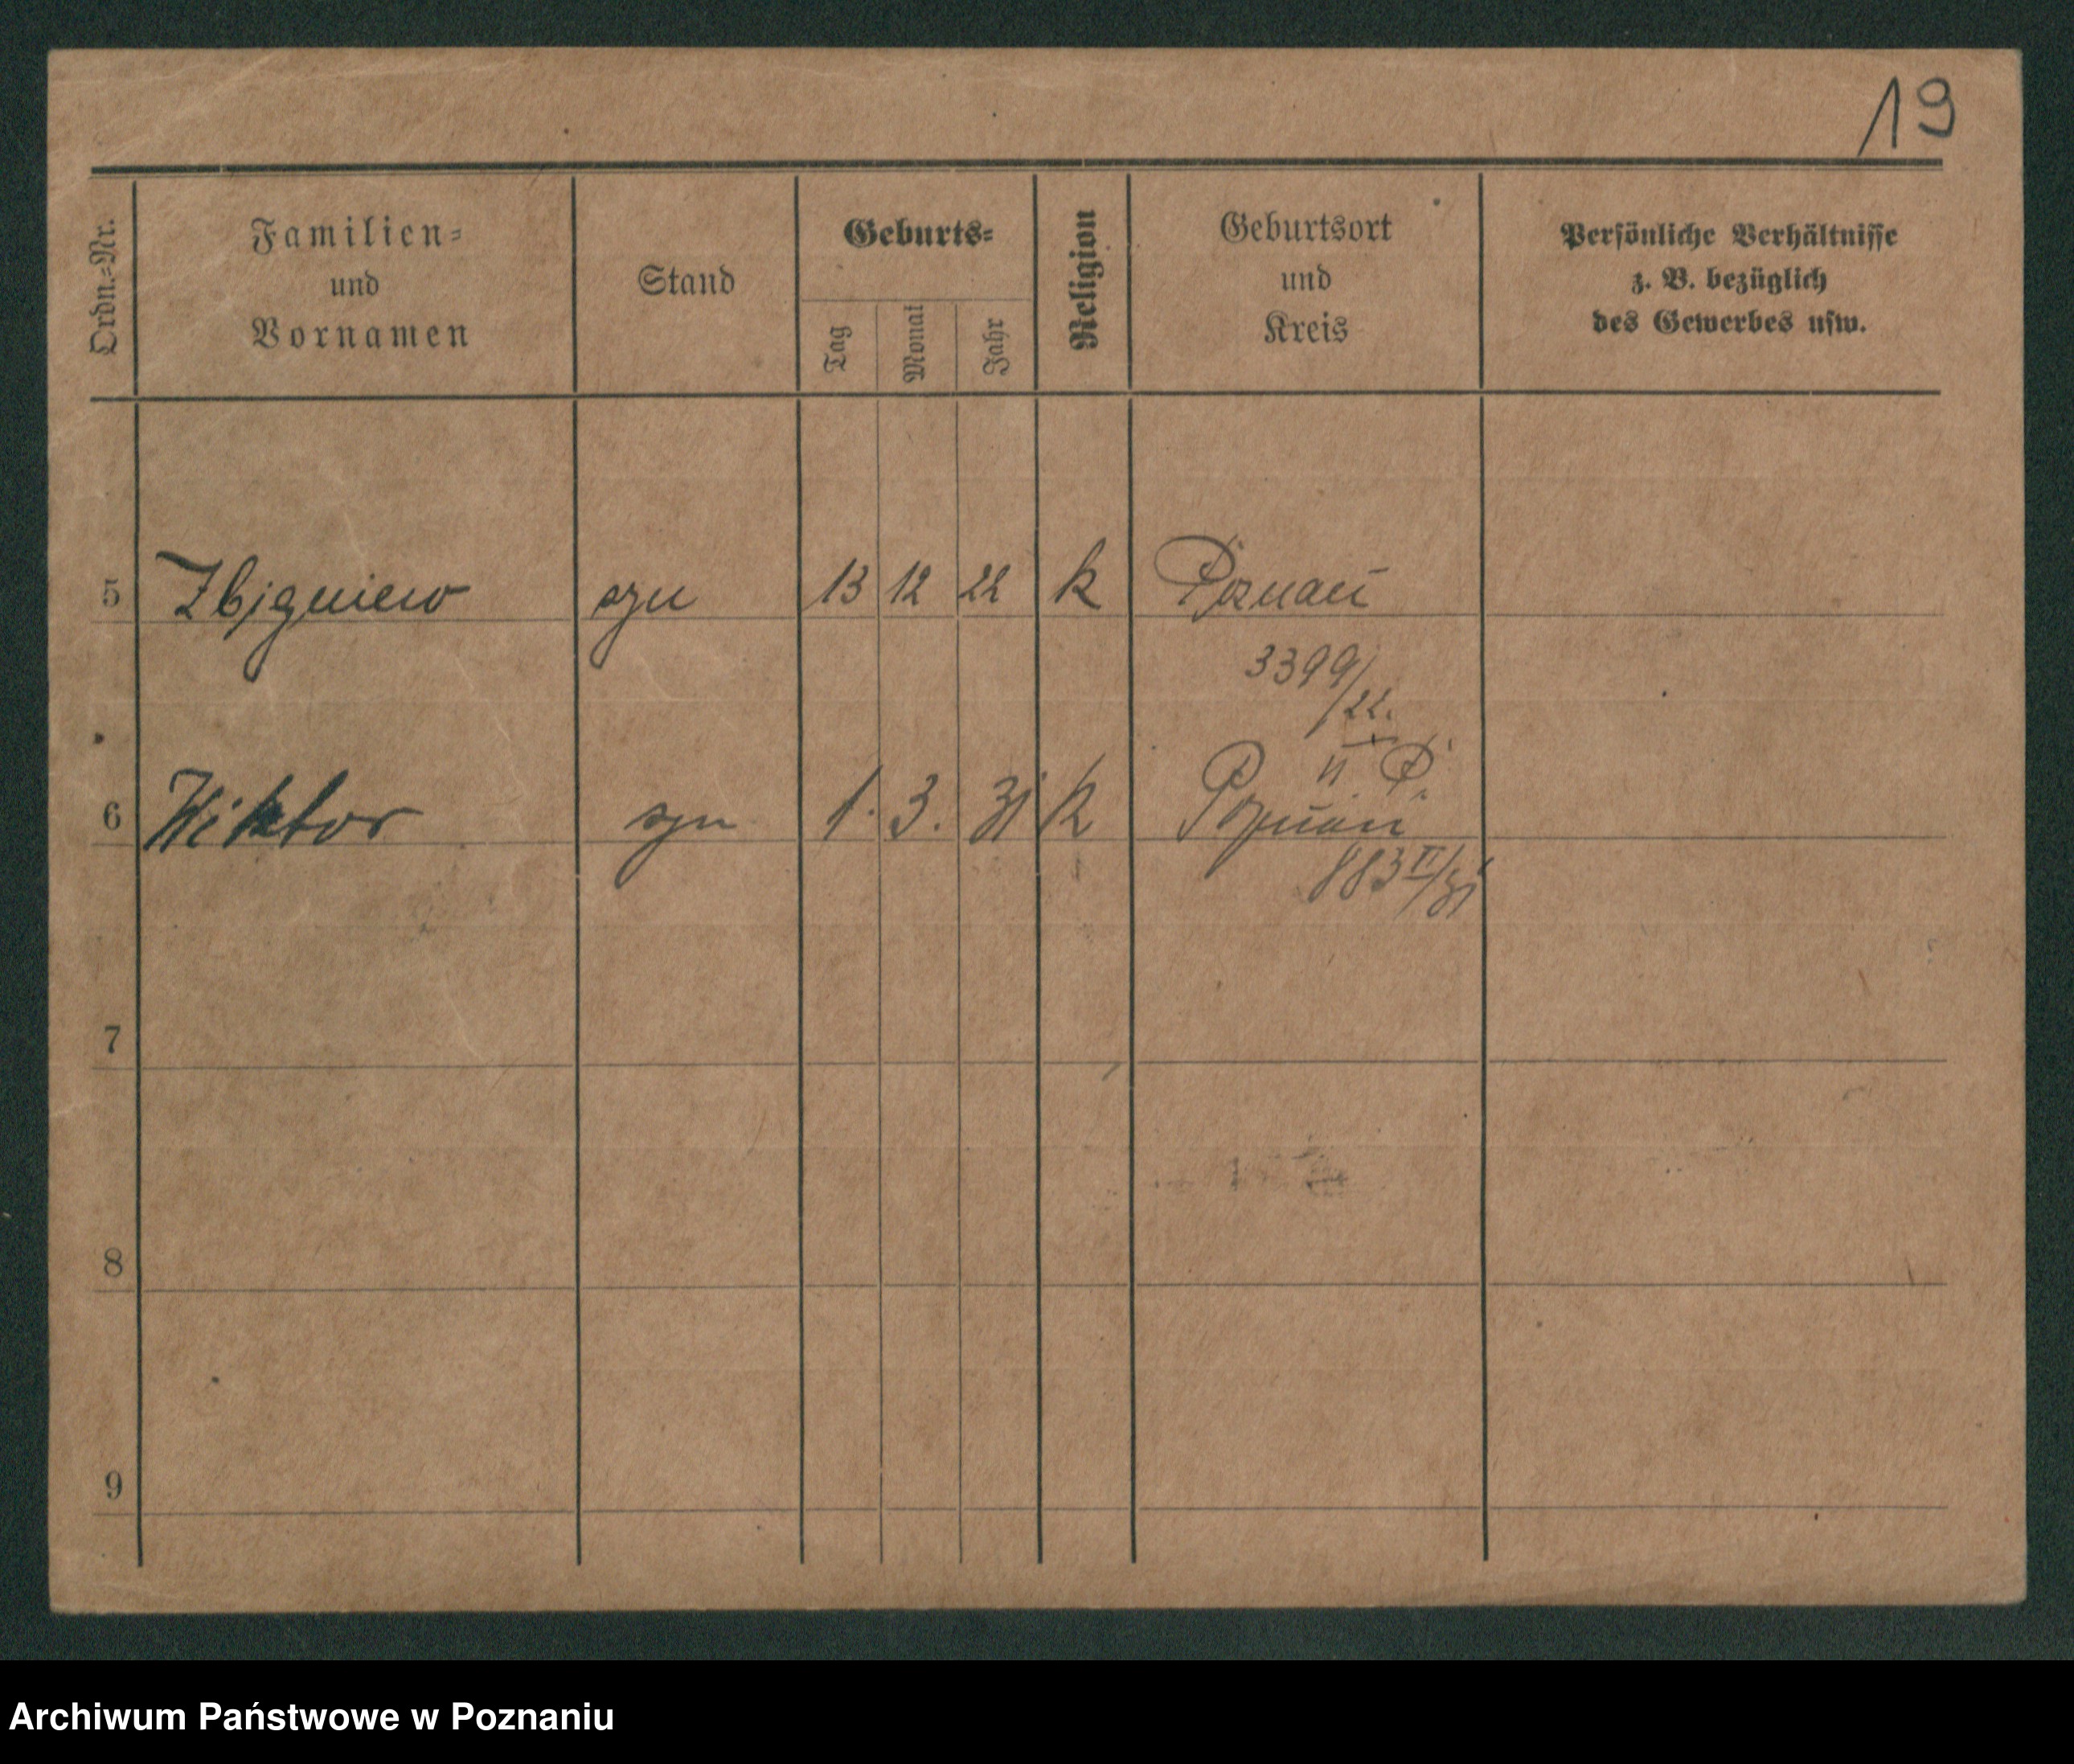 19
Ordn.-Nr.
Familien-
und
Vornamen
Stand
Geburts-
Tag
Monat
Jahr
Religion
Geburtsort
und
Kreis
Persönliche Verhältnisse
z. B. bezüglich
des Gewerbes usw.
5 Zbigniew syn 13 12 22 k Poznań
3399/22.
II P.
6 Wiktor syn 1. 3. 31 k Poznań
883 II/31
7
8
9
Archiwum Państwowe w Poznaniu